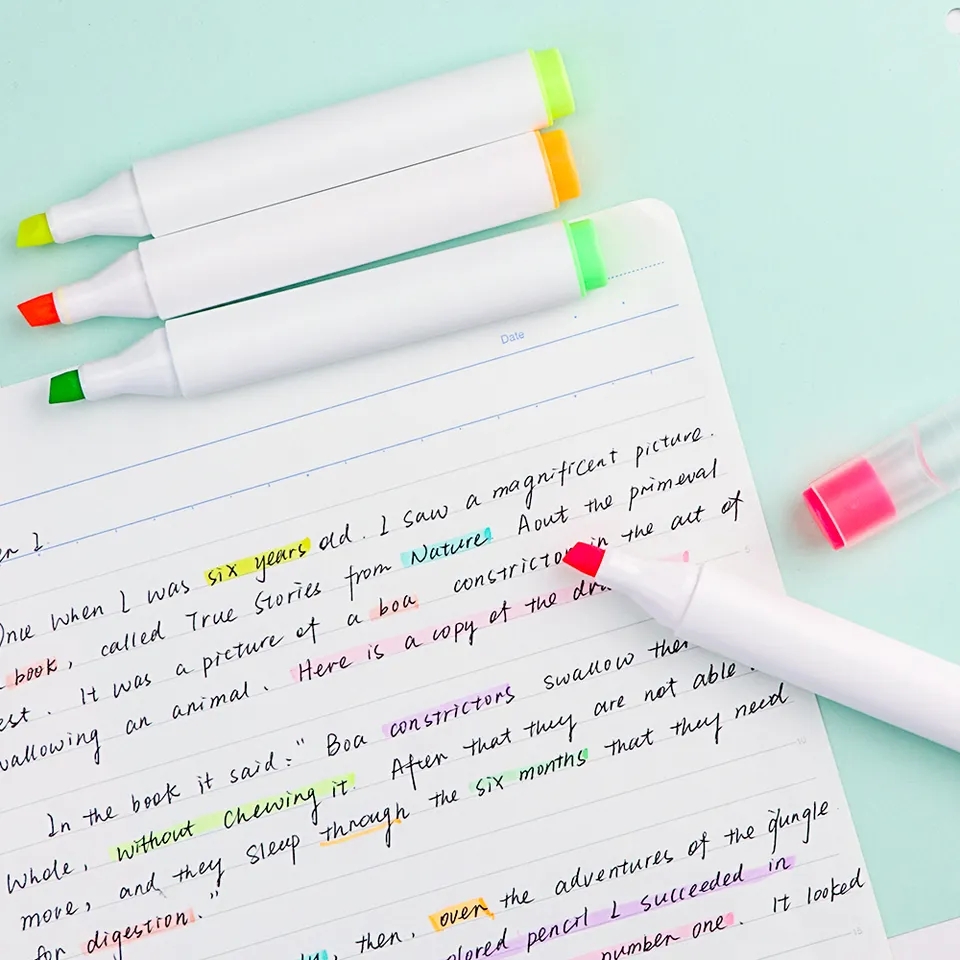 Date
Once when I was six years old. I saw a magnificent picture.
book, called True Stories from Nature. Aout the primeval
est. It was a picture of a boa constrictor in the act of
wallowing an animal. Here is a copy of the
In the book it said: " Boa constrictors swallow
Whole, without chewing it. After that they are not able
move, and they sleep through the six months that they need
for digestion."
then, over the adventures of the jungle
olored pencil I succeeded in
number one. It looked
5
10
15